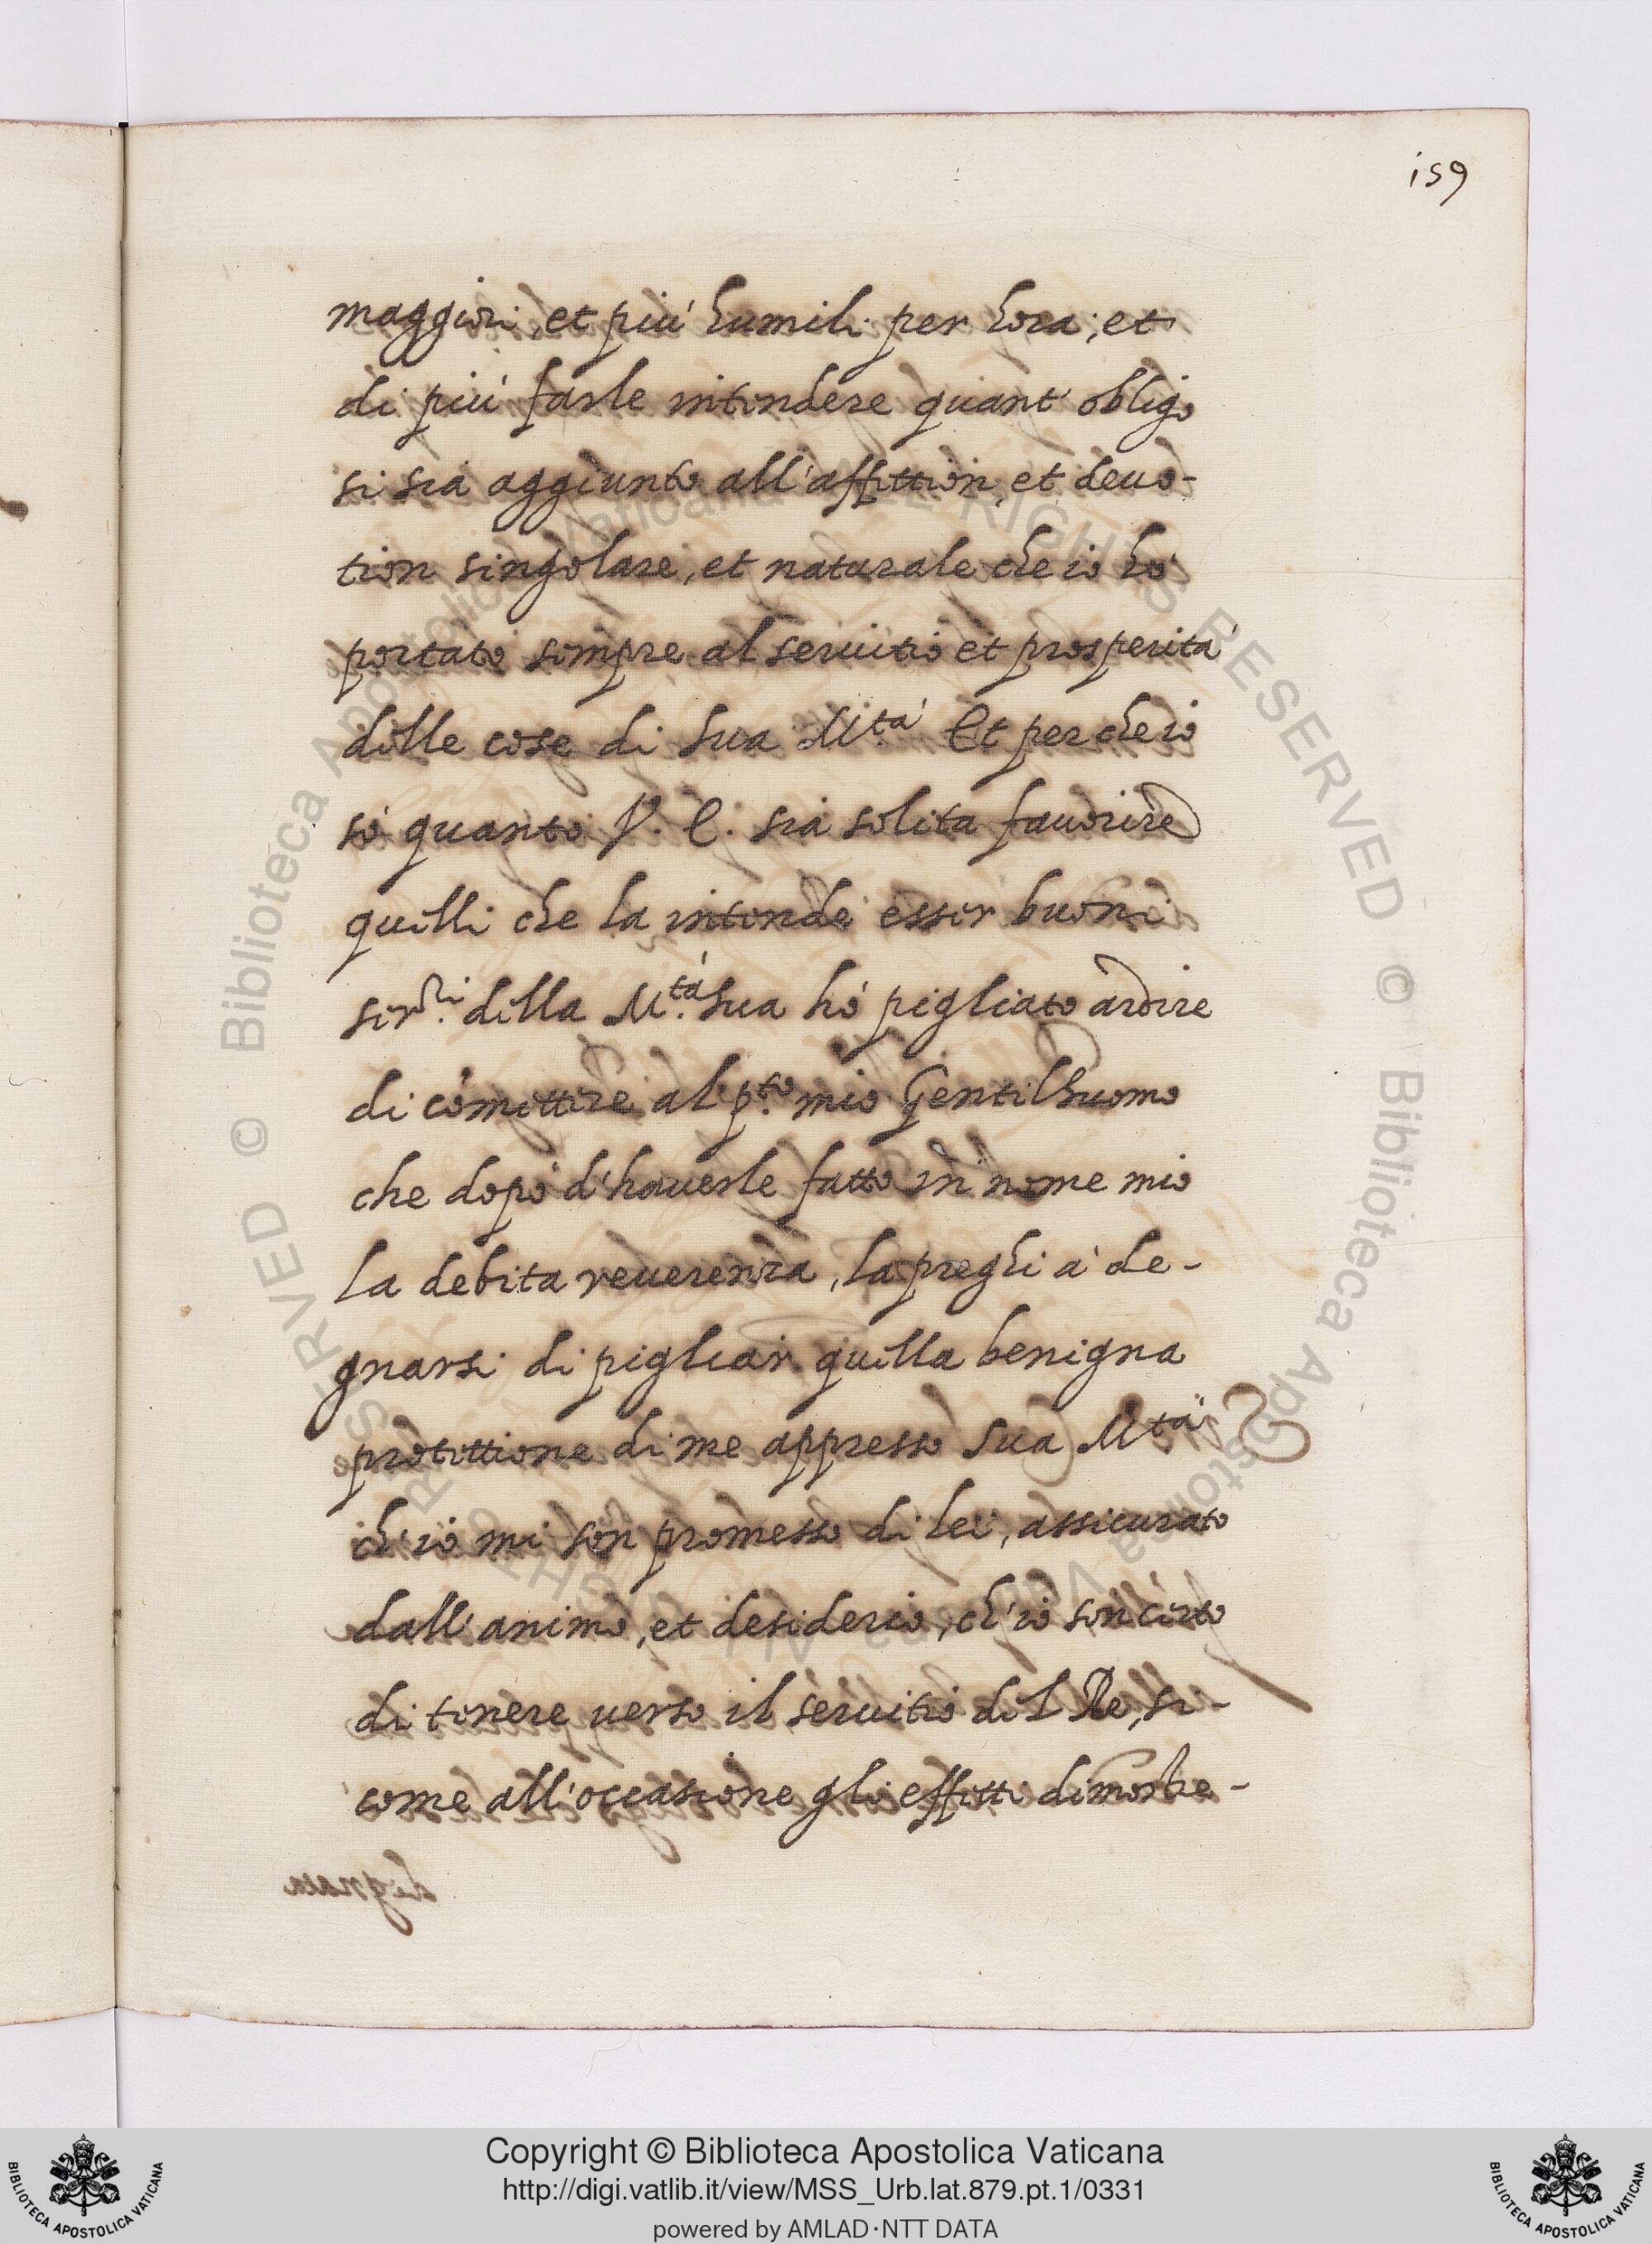 159
maggiori, et più humili per hora; et
di più farle intendere quant' obligo
si sia aggiunto all'affettion, et deuo-
tion singolare, et naturale che io hò
portato sempre al seruitio et prosperità
delle cose di Sua M.tà Et perche io
sò quanto V. E. sia solita fauorire
quelli che la intende esser buoni
ser.ri della M.tà Sua hò pigliato ardire
di cõmettere al p.to mio Gentilhuomo
che dopò d'hauerle fatto in nome mio
la debita reuerenza, la preghi à de-
gnarsi di pigliar quella benigna
protettione di me appresso Sua M.tà
ch'io mi son promesso di lei, assicurato
dall'animo, et desiderio, ch'io son certo
di tenere verso il seruitio del Re, si-
come all'occasione gli effetti dimostre-
© Biblioteca Apostolica Vaticana ALL RIGHTS RESERVED © Biblioteca Apostolica Vaticana ALL RIGHTS RESERVED
Copyright © Biblioteca Apostolica Vaticana
http://digi.vatlib.it/view/MSS_Urb.lat.879.pt.1/0331
powered by AMLAD·NTT DATA
BIBLIOTECA APOSTOLICA VATICANA
BIBLIOTECA APOSTOLICA VATICANA